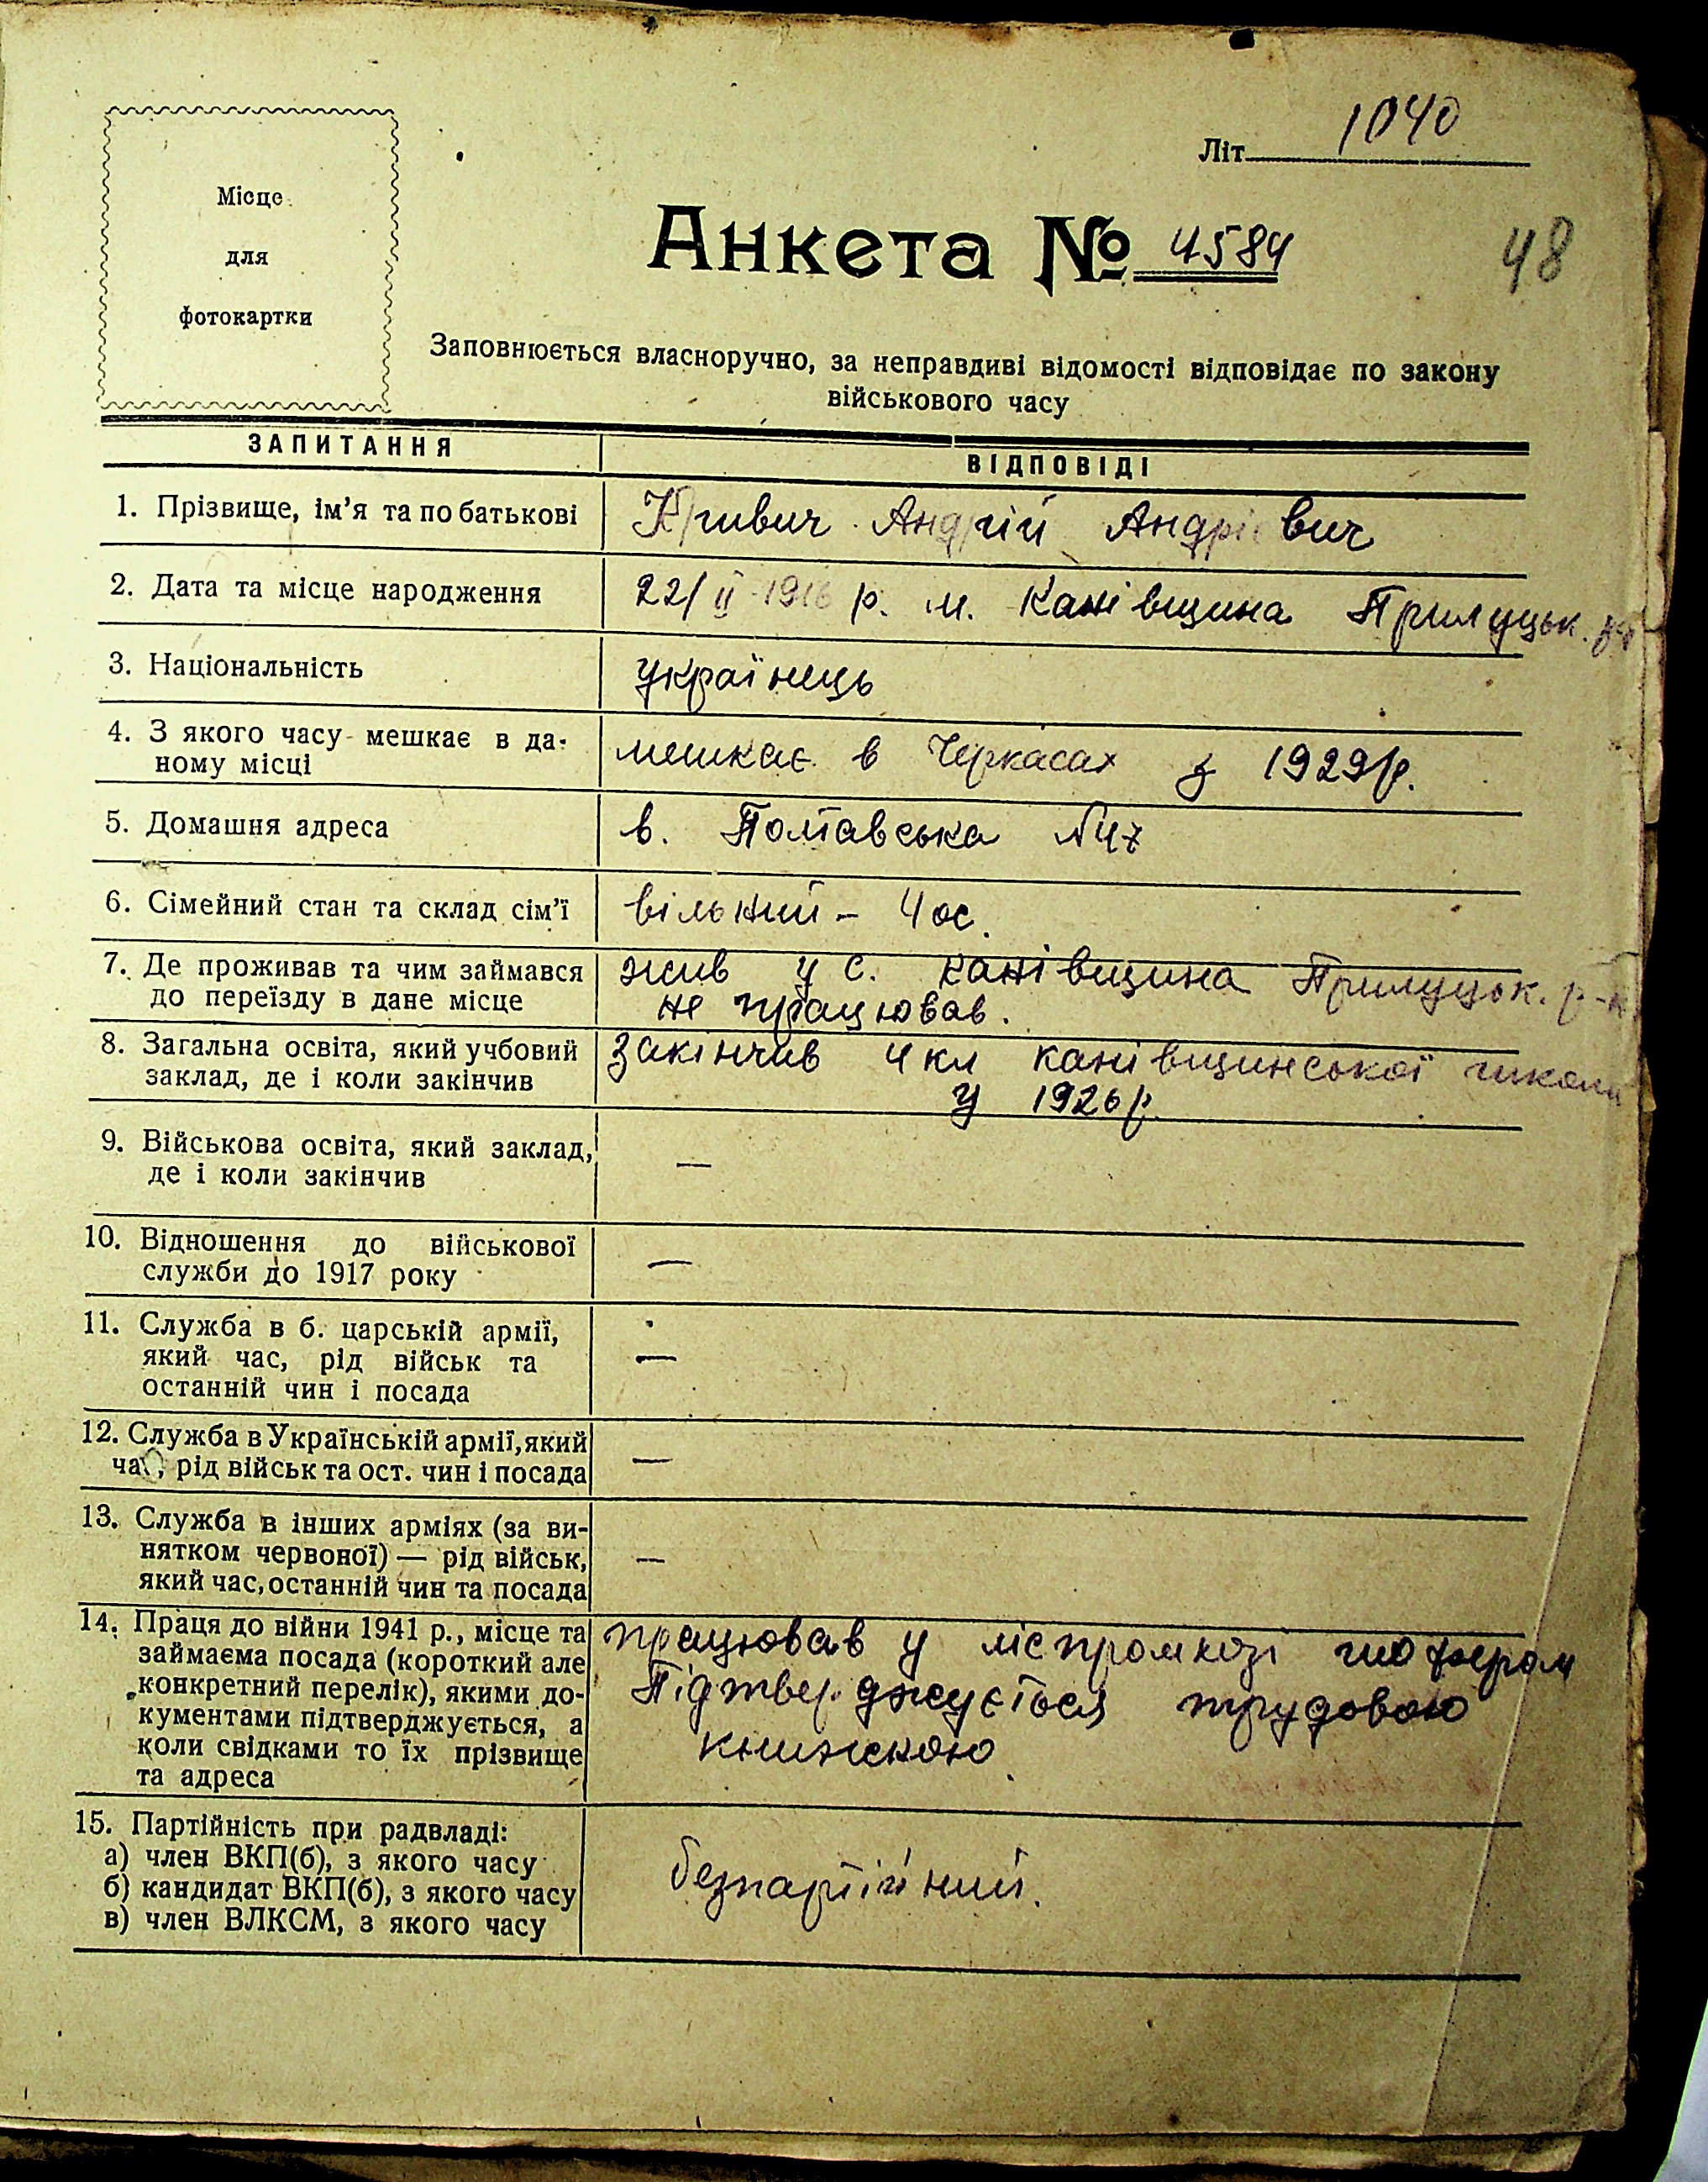 Місце
для
фотокартки
Літ. 1040
Анкета № 4584
48
Заповнюється власноручно, за неправдиві відомості відповідає по закону
військового часу
ЗАПИТАННЯ
ВІДПОВІДІ
1. Прізвище, ім'я та по батькові
Кривич Андрій Андрієвич
2. Дата та місце народження
22/II 1916 р. м. Канівщина Прилуцьк.
3. Національність
українець
4. З якого часу мешкає в да-
ному місці
мешкає в Черкасах з 1929 р.
5. Домашня адреса
в. Полтавська №47
6. Сімейний стан та склад сім'ї
вільний – 4 ос.
7. Де проживав та чим займався
до переїзду в дане місце
жив у с. Канівщина Прилуцьк. р-н
не працював.
8. Загальна освіта, який учбовий
заклад, де і коли закінчив
Закінчив 4 кл канівщинської школи
у 1926 р.
9. Військова освіта, який заклад,
де і коли закінчив
—
10. Відношення до військової
служби до 1917 року
—
11. Служба в б. царській армії,
який час, рід військ та
останній чин і посада
—
12. Служба в Українській армії, який
час, рід військ та ост. чин і посада
—
13. Служба в інших арміях (за ви-
нятком червоної) — рід військ,
який час, останній чин та посада
—
14. Праця до війни 1941 р., місце та
займаєма посада (короткий але
конкретний перелік), якими до-
кументами підтверджується, а
коли свідками то їх прізвище
та адреса
працював у міспромхозі шофером
Підтверджується трудовою
книжкою
15. Партійність при радвладі:
а) член ВКП(б), з якого часу
б) кандидат ВКП(б), з якого часу
в) член ВЛКСМ, з якого часу
безпартійний.